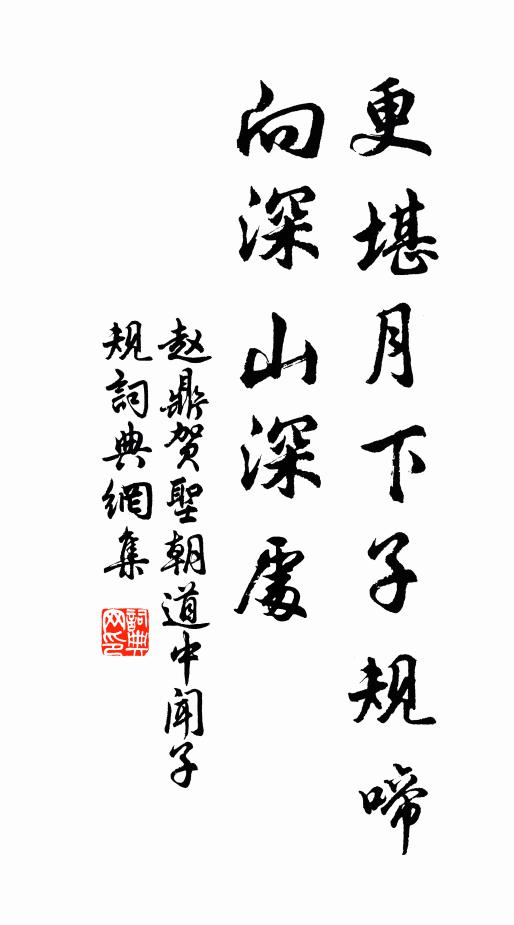 更堪月下子規啼
向深山深處
赵鼎贺聖朝道中闻子
规詞典網集
詞典
网印